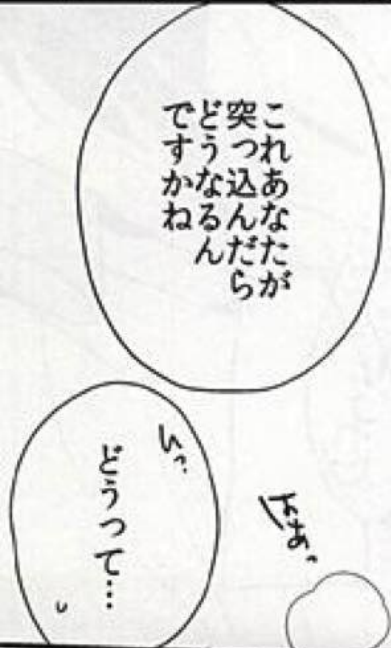 これあなたが
突っ込んだら
どうなるん
ですかね
はあっ
いっ
どうって…